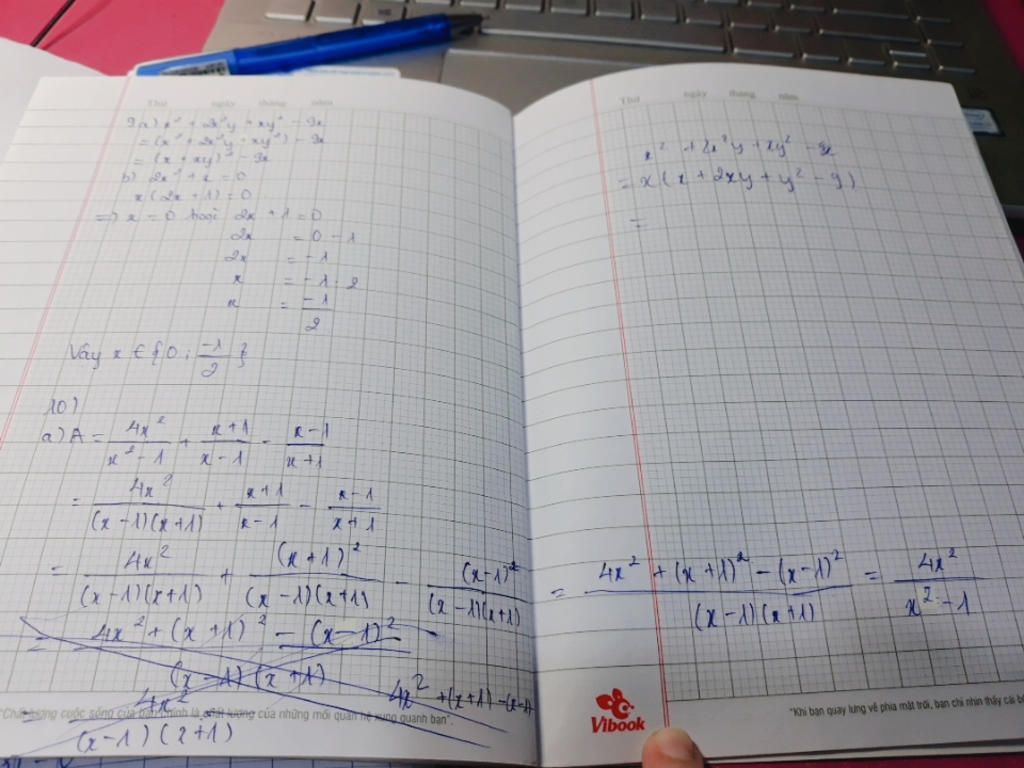 Thứ ngày tháng năm
9 a) x³ + 2x²y + xy² - 9x
= (x³ + 2x²y + xy²) - 9x
= (x + xy)² - 9x
b) 2x² + x = 0
x(2x + 1) = 0
=> x = 0 hoặc 2x + 1 = 0
2x = 0 - 1
2x = -1
x = -1 : 2
x = -1/2
Vậy x ∈ {0 ; -1/2}
10)
a) A = 4x²/(x² - 1) + (x+1)/(x-1) - (x-1)/(x+1)
= 4x²/((x-1)(x+1)) + (x+1)/(x-1) - (x-1)/(x+1)
= 4x²/((x-1)(x+1)) + (x+1)²/((x-1)(x+1)) - (x-1)²/((x-1)(x+1))
= (4x² + (x+1)² - (x-1)²)/((x-1)(x+1))
4x²
(x-1)(x+1)
4x² + (x+1) - (x-1)
"Chất lượng cuộc sống của bạn chính là chất lượng của những mối quan hệ xung quanh bạn".
Thứ ngày tháng năm
x² + 2x²y + xy² - 9x
= x(x + 2xy + y² - 9)
=
= (4x² + (x+1)² - (x-1)²)/((x-1)(x+1)) = 4x²/(x² - 1)
Vibook
"Khi bạn quay lưng về phía mặt trời, bạn chỉ nhìn thấy cái